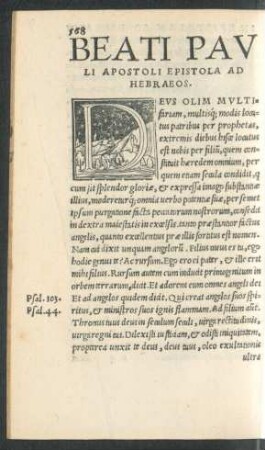 568
BEATI PAV
LI APOSTOLI EPISTOLA AD
HEBRAEOS.
DEVS OLIM MVLTI
fariam, multisq; modis locu
tus patribus per prophetas,
extremis diebus hisce locutus
est nobis per filiũ, quem con
stituit hæredem omnium, per
quem etiam secula condidit, q
cum sit splendor gloriæ, & expressa imago substantiæ
illius, moderetúrq; omnia uerbo potentiæ suæ, per semet
ipsum purgatione facta peccatorum nostrorum, consedit
in dextra maiestatis in excelsis, tanto præstantior factus
angelis, quanto excellentius præ illis sortitus est nomen.
Nam cui dixit unquam angelorũ. Filius meus es tu, ego
hodie genui te? Ac rursum. Ego ero ei pater, & ille erit
mihi filius. Rursum autem cum inducit primogenitum in
orbem terrarum, dicit. Et adorent eum omnes angeli dei
Psal. 103. Et ad angelos quidem dicit. Qui creat angelos suos spi
ritus, & ministros suos ignis flammam. Ad filium aũt.
Psal. 44. Thronus tuus deus in seculum seculi, uirga rectitudinis,
uirga regni tui. Dilexisti iustitiam, & odisti iniquitatem,
propterea unxit te deus, deus tuus, oleo exultationis
ultra